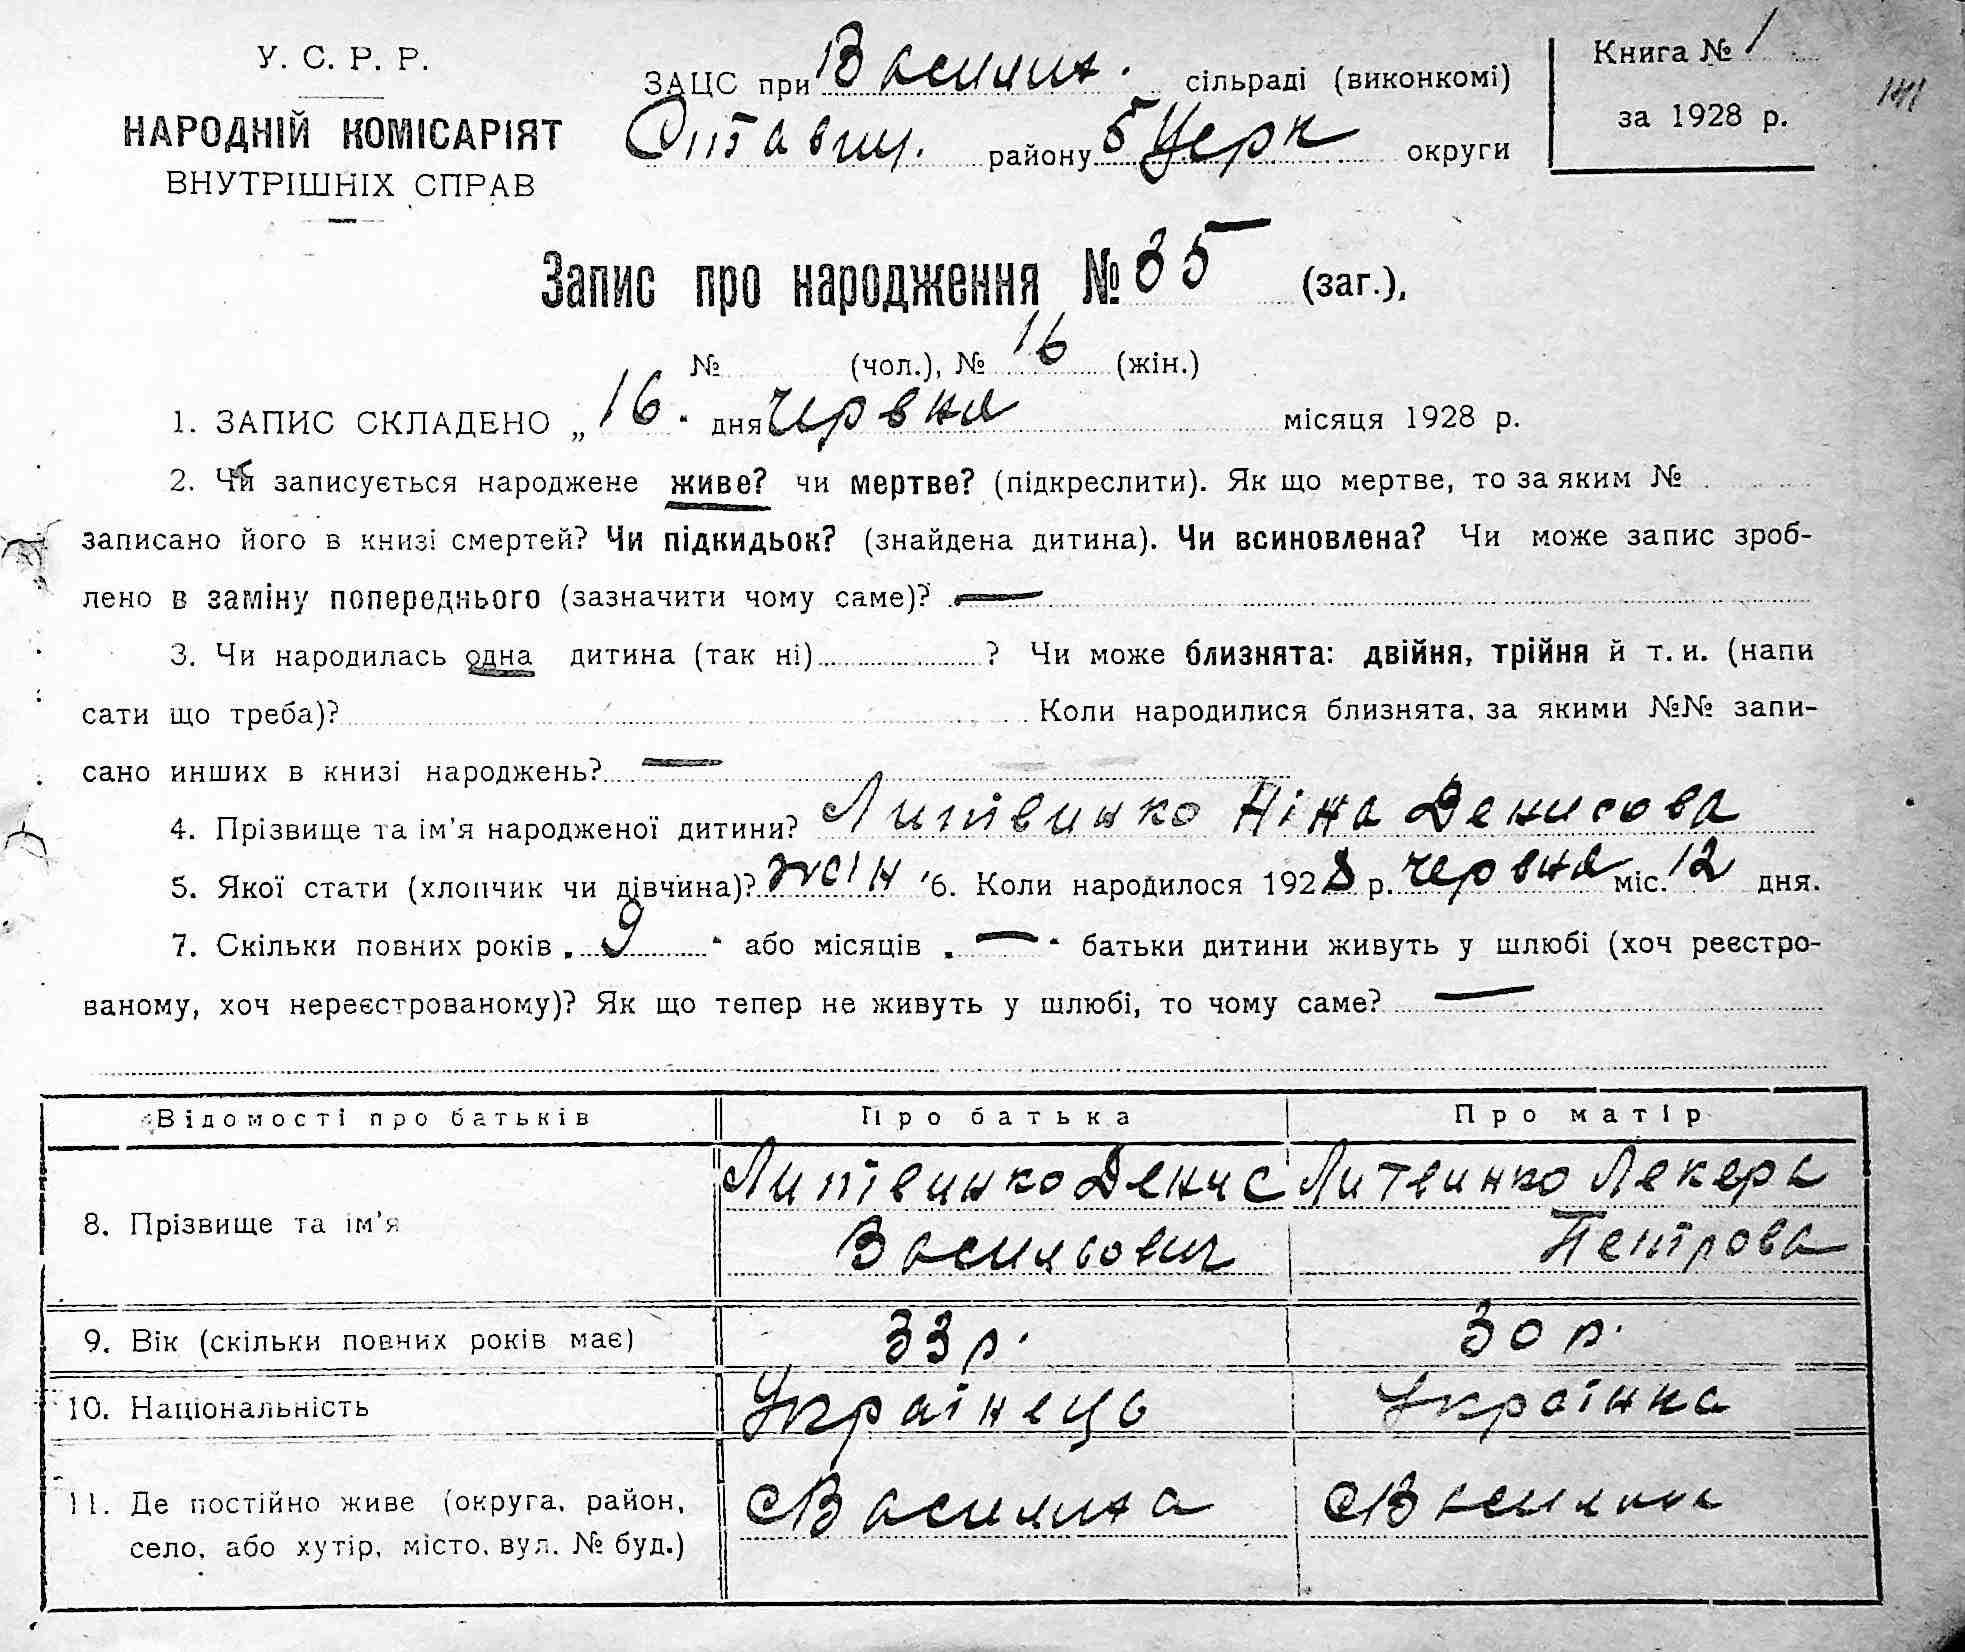 У. С. Р. Р.
НАРОДНІЙ КОМІСАРІЯТ
ВНУТРІШНІХ СПРАВ
ЗАЦС при Василих. сільраді (виконкомі)
Ставищ. району БЦерк округи
Книга № 1
за 1928 р.
141
Запис про народження № 35 (заг.),
№ (чол.), № 16 (жін.)
1. ЗАПИС СКЛАДЕНО „ 16 " дня червня місяця 1928 р.
2. Чи записується народжене живе? чи мертве? (підкреслити). Як що мертве, то за яким №
записано його в книзі смертей? Чи підкидьок? (знайдена дитина). Чи всиновлена? Чи може запис зроб-
лено в заміну попереднього (зазначити чому саме)? —
3. Чи народилась одна дитина (так ні) ? Чи може близнята: двійня, трійня й т. и. (напи
сати що треба)? Коли народилися близнята, за якими №№ запи-
сано инших в книзі народжень? —
4. Прізвище та ім'я народженої дитини? Литвинко Ніна Денисова
5. Якої стати (хлопчик чи дівчина)? жін 6. Коли народилося 1928 р. червня міс. 12 дня.
7. Скільки повних років „ 9 " або місяців „ — " батьки дитини живуть у шлюбі (хоч реєстро-
ваному, хоч нереєстрованому)? Як що тепер не живуть у шлюбі, то чому саме? —
Відомості про батьків Про батька Про матір
8. Прізвище та ім'я Литвинко Денис Васильович Литвинко Лекера Петрова
9. Вік (скільки повних років має) 33 р. 30 р.
10. Національність Українець Українка
11. Де постійно живе (округа, район, село, або хутір, місто, вул. № буд.) с Василиха с Василиха